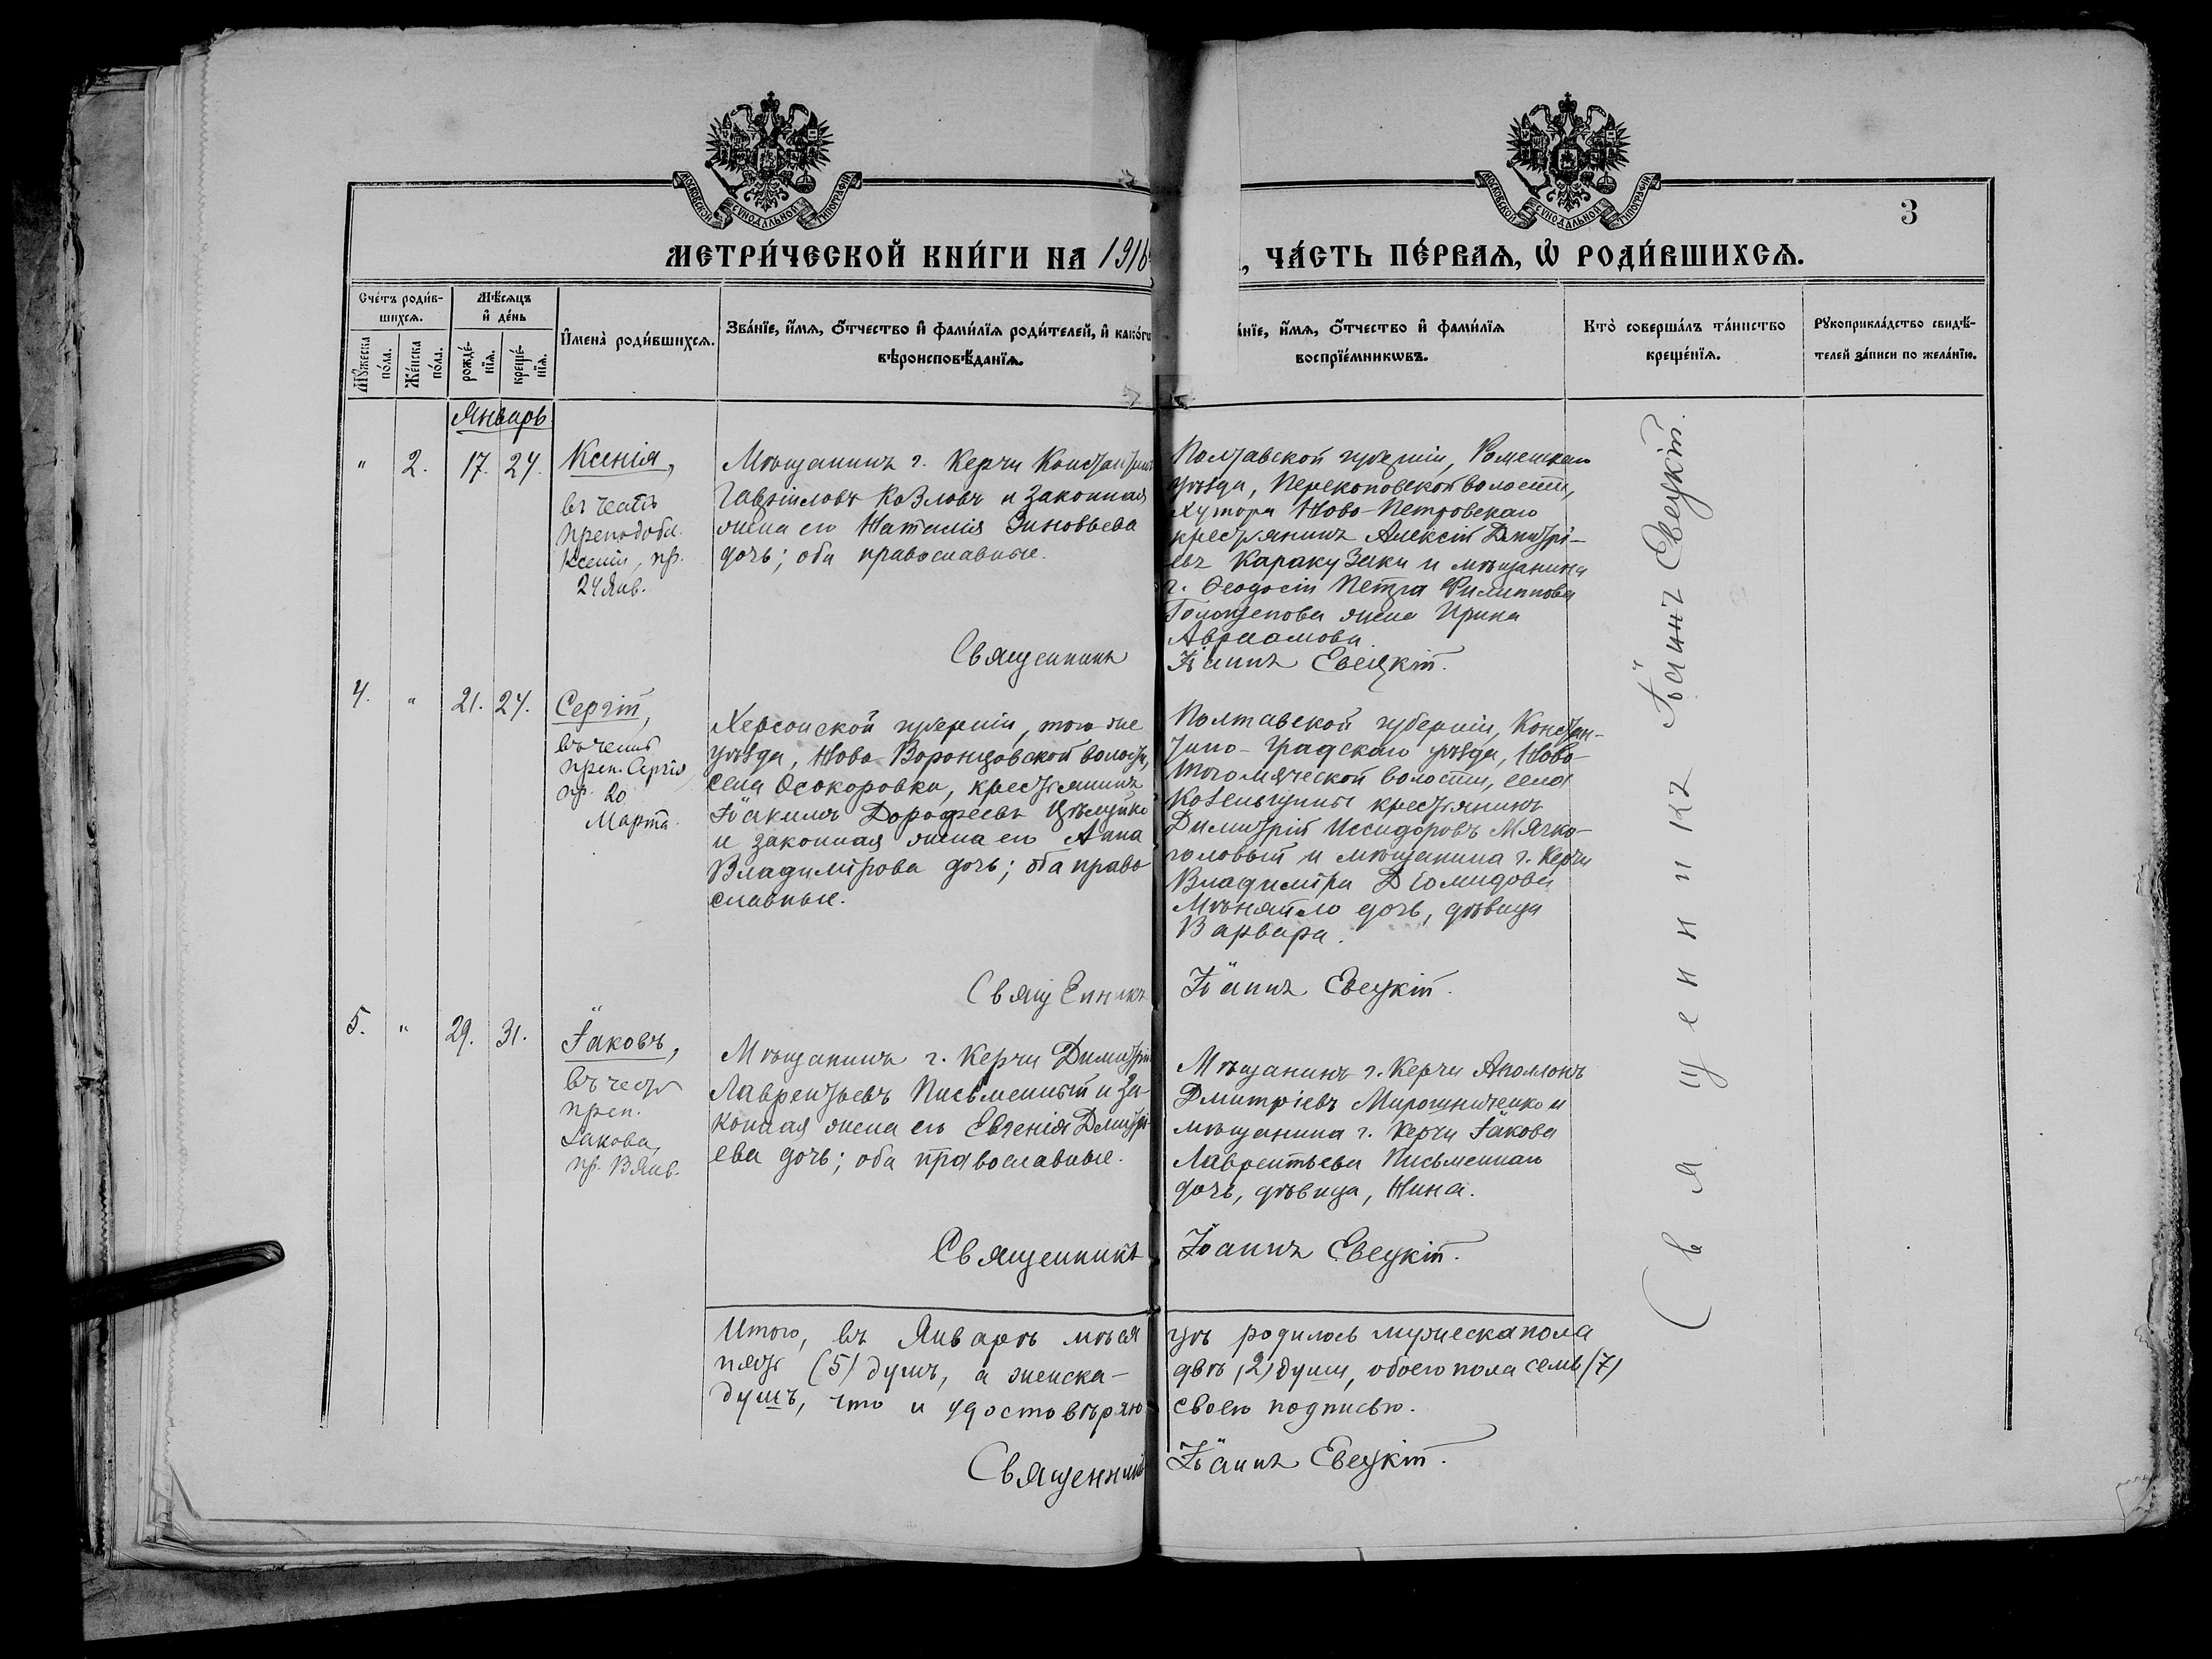 МОСКОВСКОЙ СѴНОДАЛЬНОЙ ТИПОГРАФІИ
МОСКОВСКОЙ СѴНОДАЛЬНОЙ ТИПОГРАФІИ
3
МЕТРИ́ЧЕСКОЙ КНИ́ГИ НА 1916
, ЧА́СТЬ ПЕ́РВАѦ, Ѡ҆ РОДИ́ВШИХСѦ.
Сче́тъ роди́в-
шихсѧ.
Мꙋ́жеска
по́ла.
Же́нска
по́ла.
Мѣ́сѧцъ
и҆ де́нь
рожде́-
нїѧ.
креще́-
нїѧ.
И҆мена̀ роди́вшихсѧ.
Зва́нїе, и҆́мѧ, ѻ҆́тчество и҆ фами́лїѧ роди́телей, и҆ како́гѡ
вѣроисповѣ́данїѧ.
а́нїе, и҆́мѧ, ѻ҆́тчество и҆ фами́лїѧ
воспрїе́мникѡвъ.
Кто̀ соверша́лъ та́инство
креще́нїѧ.
Рꙋкоприкла́дство свидѣ́-
телей за́писи по жела́нїю.
Январь
" 2. 17. 24.
Ксенія,
въ честь
преподобн.
Ксеніи, пр.
24 Янв.
Мѣщанинъ г. Керчи Константинъ
Гавріиловъ Козловъ и законная
жена его Наталія Зиновьева
дочь; оба православные.
Священникъ
Полтавской губерніи, Роменскаго
уѣзда, Перекоповской волости,
хутора Ново-Петровскаго
крестьянинъ Алексій Дмитрі-
евъ Каракузеки и мѣщанина
г. Ѳеодосіи Петра Филиппова
Голощепова жена Ирина
Авраамова.
Іоаннъ Евецкій.
4. " 21. 24.
Сергій,
въ честь
преп. Сергія,
пр. 20
Марта.
Херсонской губерніи, того же
уѣзда, Ново-Воронцовской волости,
села Осокоровки, крестьянинъ
Іоакимъ Дороѳеевъ
и законная жена его Анна
Владимірова дочь; оба право-
славные.
Священникъ
Полтавской губерніи, Констан-
тино-Градскаго уѣзда, Ново-
волости, села
Козельщины крестьянинъ
Димитрій Исидоровъ Мячко-
головый и мѣщанина г. Керчи
Владиміра Діомидова
Мѣняйло дочь, дѣвица
Варвара.
Іоаннъ Евецкій.
5. " 29. 31.
Іаковъ,
въ честь
преп.
Іакова,
пр. 13 Янв.
Мѣщанинъ г. Керчи Димитрій
Лаврентьевъ Письменный и за-
конная жена его Евгенія Дмитрі-
ева дочь; оба православные.
Священникъ
Мѣщанинъ г. Керчи Аполлонъ
Дмитріевъ Мирошниченко и
мѣщанина г. Керчи Іакова
Лаврентьева Письменнаго
дочь, дѣвица, Нина.
Іоаннъ Евецкій.
Итого, въ Январѣ мѣся
цѣ родилось мужеска пола
пять (5) душъ, а женска-
двѣ (2) души, обоего пола семь (7)
душъ, что и удостовѣряю
своею подписью.
Священникъ
Іоаннъ Евецкій.
Священникъ Іоаннъ Евецкій.